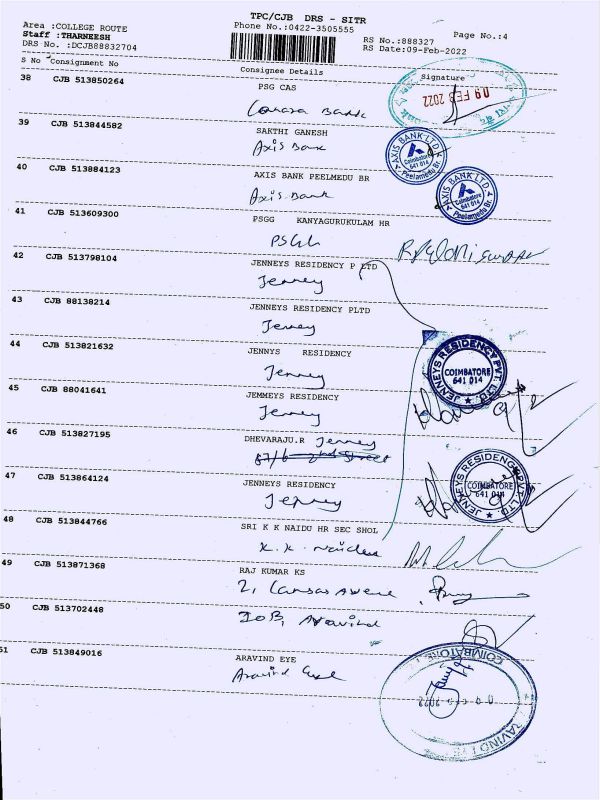 TPC/CJB DRS - SITR
Area :COLLEGE ROUTE
Phone No.:0422-3505555
Staff :THARNEESH
RS No.:888327 Page No.:4
DRS No. :DCJB88832704
RS Date:09-Feb-2022
S No Consignment No Consignee Details Signature
38 CJB 513850264 PSG CAS
Canara Bank
09 FEB 2022
39 CJB 513844582 SAKTHI GANESH
Axis Bank
AXIS BANK LTD. Coimbatore 641 014 Peelamedu Br.
40 CJB 513884123 AXIS BANK PEELMEDU BR
Axis Bank
AXIS BANK LTD. Coimbatore 641 014 Peelamedu Br.
41 CJB 513609300 PSGG KANYAGURUKULAM HR
42 CJB 513798104 JENNEYS RESIDENCY P LTD
Jenney
43 CJB 88138214 JENNEYS RESIDENCY PLTD
Jenney
44 CJB 513821632 JENNYS RESIDENCY
Jenney
JENNEYS RESIDENCY PVT. LTD. COIMBATORE 641 014
45 CJB 88041641 JEMMEYS RESIDENCY
Jenney
46 CJB 513827195 DHEVARAJU.R Jenney
67/6 2nd Street
47 CJB 513864124 JENNEYS RESIDENCY
Jenney
JENNEYS RESIDENCY PVT. LTD. COIMBATORE 641 014
48 CJB 513844766 SRI K K NAIDU HR SEC SHOL
K.K. Naidu
49 CJB 513871368 RAJ KUMAR KS
50 CJB 513702448 IOB, Aravind
51 CJB 513849016 ARAVIND EYE
Aravind Eye
COIMBATORE